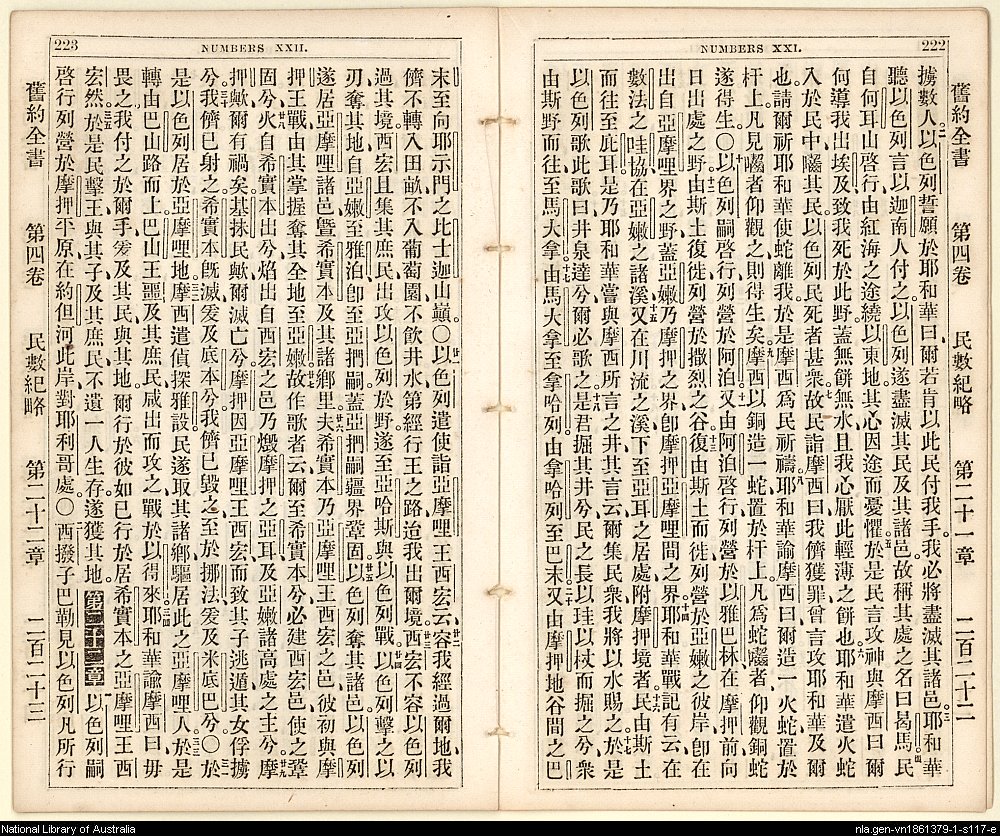 222
NUMBERS XXI.
舊約全書 第四卷 民數紀略 第二十一章 二百二十二
擄數人二以色列誓願於耶和華曰爾若肯以此民付我手我必將盡滅其諸邑三耶和華
聽以色列言以迦南人付之以色列遂盡滅其民及其諸邑故稱其處之名曰曷馬四民
自何耳山啓行由紅海之途繞以東地其心因途而憂懼五於是民言攻神與摩西曰爾
何導我出埃及致我死於此野蓋無餅無水且我心厭此輕薄之餅也六耶和華遣火蛇
入於民中囓其民以色列民死者甚衆七故民詣摩西曰我儕獲罪曾言攻耶和華及爾
也請爾祈耶和華使蛇離我於是摩西爲民祈禱八耶和華諭摩西曰爾造一火蛇置於
杆上凡見囓者仰觀之則得生矣九摩西以銅造一蛇置於杆上凡爲蛇囓者仰觀銅蛇
遂得生〇十以色列嗣啓行列營於阿泊十一又由阿泊啓行列營於以雅巴林在摩押前向
日出處之野十二由斯土復徙列營於撒烈之谷十三復由斯土而徙列營於亞嫩之彼岸卽在
出自亞摩哩界之野蓋亞嫩乃摩押之界卽摩押亞摩哩間之界十四耶和華戰記有云在
數法之哇協在亞嫩之諸溪十五又在川流之溪下至亞耳之居處附摩押境者十六民由斯土
而往至庇耳是乃耶和華嘗與摩西所言之井其言云爾集民衆我將以水賜之十七於是
以色列歌此歌曰井泉達兮爾必歌之十八是君掘其井兮民之長以珪以杖而掘之兮衆
由斯野而往至馬大拿十九由馬大拿至拿哈列由拿哈列至巴末二十又由摩押地谷間之巴
223
NUMBERS XXII.
末至向耶示門之比士迦山巔〇廿一以色列遣使詣亞摩哩王西宏云廿二容我經過爾地我
儕不轉入田畝不入葡萄園不飲井水第經行王之路迨我出爾境廿三西宏不容以色列
過其境西宏且集其庶民出攻以色列於野遂至亞哈斯與以色列戰廿四以色列擊之以
刃奪其地自亞嫩至雅泊卽至亞捫嗣蓋亞捫嗣疆界鞏固廿五以色列奪其諸邑以色列
遂居亞摩哩諸邑曁希實本及其諸鄉里廿六夫希實本乃亞摩哩王西宏之邑彼初與摩
押王戰由其掌握奪其全地至亞嫩廿七故作歌者云爾至希實本兮必建西宏邑使之鞏
固兮廿八火自希實本出兮焰出自西宏之邑乃燬摩押之亞耳及亞嫩諸高處之主兮廿九摩
押歟爾有禍矣基抹民歟爾滅亡兮摩押因亞摩哩王西宏而致其子逃遁其女俘擄
兮三十我儕已射之希實本旣滅爰及底本兮我儕已毀之至於挪法爰及米底巴兮〇三一於
是以色列居於亞摩哩地三二摩西遣偵探雅設民遂取其諸鄉驅居此之亞摩哩人三三於是
轉由巴山路而上巴山王噩及其庶民咸出而攻之戰於以得來三四耶和華諭摩西曰毋
畏之我付之於爾手爰及其民與其地爾行於彼如已行於居希實本之亞摩哩王西
宏然三五於是民擊王與其子及其庶民不遺一人生存遂獲其地第二十二章一以色列嗣
啓行列營於摩押平原在約但河此岸對耶利哥處〇二西撥子巴勒見以色列凡所行
舊約全書 第四卷 民數紀略 第二十二章 二百二十三
National Library of Australia
nla.gen-vn1861379-1-s117-e